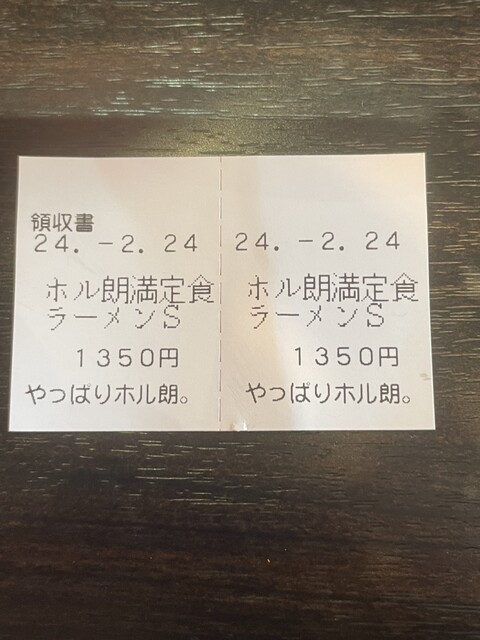 領収書
24.-2.24
ホル朗満定食
ラーメンS
1350円
やっぱりホル朗。
24.-2.24
ホル朗満定食
ラーメンS
1350円
やっぱりホル朗。